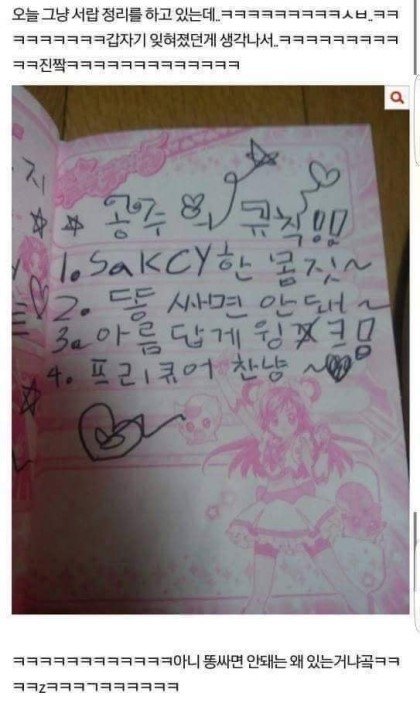 오늘 그냥 서랍 정리를 하고 있는데..ㅋㅋㅋㅋㅋㅋㅋㅋㅋㅅㅂ..ㅋㅋ
ㅋㅋㅋㅋㅋㅋㅋ갑자기 잊혀졌던게 생각나서..ㅋㅋㅋㅋㅋㅋㅋㅋㅋㅋ
ㅋㅋ진짴ㅋㅋㅋㅋㅋㅋㅋㅋㅋㅋㅋㅋㅋ
지
공주의 규칙!!
1. SaKCY한 몸짓~
2. 똥 싸면 안돼~
3. 아름답게 윙크
4. 프리큐어 찬냥~
ㅋㅋㅋㅋㅋㅋㅋㅋㅋㅋㅋㅋ아니 똥싸면 안돼는 왜 있는거냐곸ㅋㅋ
ㅋㅋzㅋㅋㅋㄱㅋㅋㅋㅋㅋㅋ